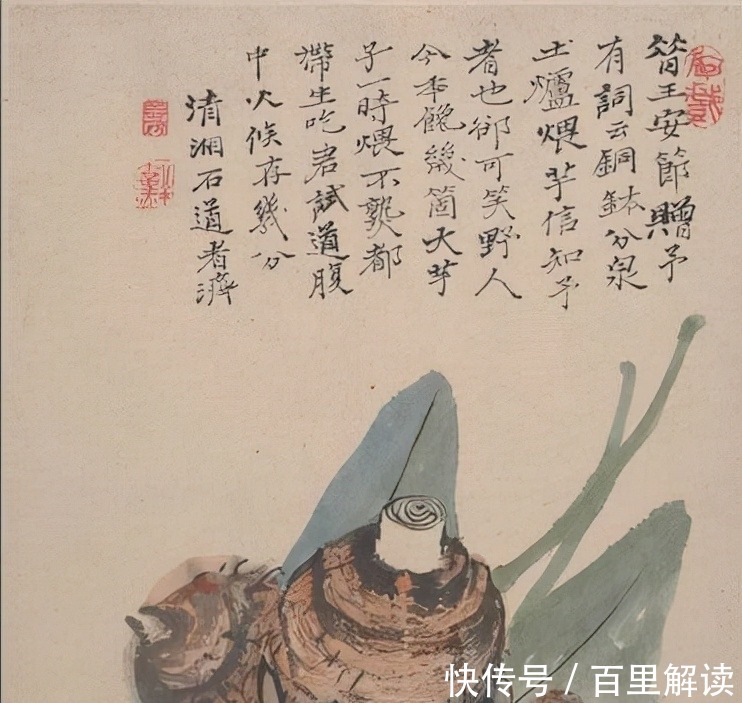 昔王安節贈予
有詞云銅鉢分泉
土爐煨芋信知予
者也卻可笑野人
今季饑幾箇大芋
子一時煨不熟都
帶生吃君試道腹
中火候存幾分
清湘石道者濟
快传号 / 百里解读